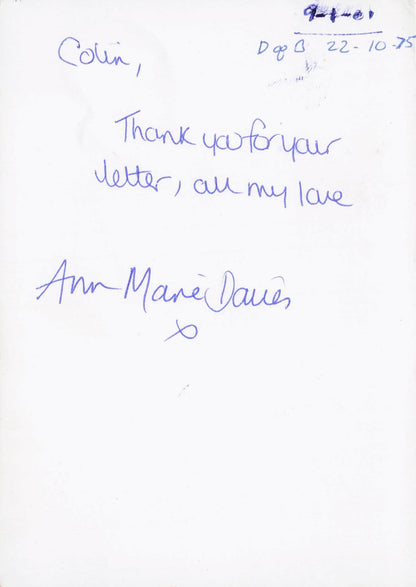 9-1-01
D of B 22-10-75
Colin,
Thank you for your
letter, all my love
Ann-Marie Davies
x